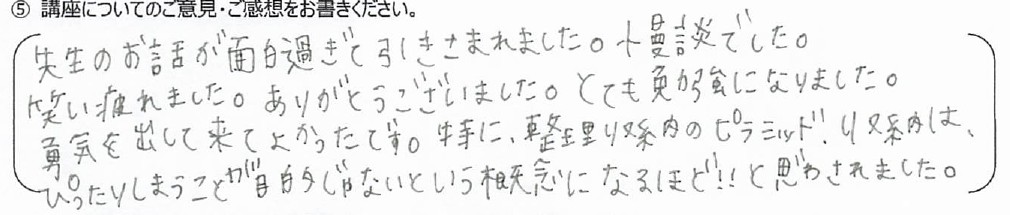 ⑤ 講座についてのご意見・ご感想をお書きください。
先生のお話が面白過ぎて引きこまれました。漫談でした。
笑い疲れました。ありがとうございました。とても勉強になりました。
勇気を出して来てよかったです。特に、整理収納のピラミッド!収納は、
ぴったりしまうことが目的じゃないという概念になるほど!!と思わされました。